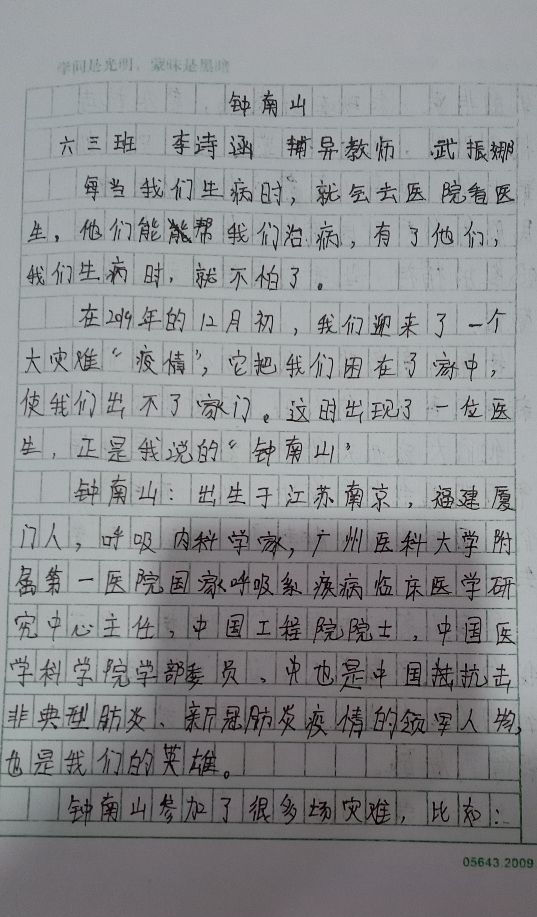 学问是光明,蒙昧是黑暗
钟南山
六三班 李诗涵 辅导教师 武振娜
每当我们生病时,就会去医院看医
生,他们能能帮我们治病,有了他们,
我们生病时,就不怕了。
在2019年的12月初,我们迎来了一个
大灾难“疫情”,它把我们困在了家中,
使我们出不了家门。这时出现了一位医
生,正是我说的“钟南山”
钟南山:出生于江苏南京,福建厦
门人,呼吸内科学家,广州医科大学附
属第一医院国家呼吸系疾病临床医学研
究中心主任,中国工程院院士,中国医
学科学院学部委员、也是中国抗击
非典型肺炎、新冠肺炎疫情的领军人物,
也是我们的英雄。
钟南山参加了很多场灾难,比如:
05643.2009